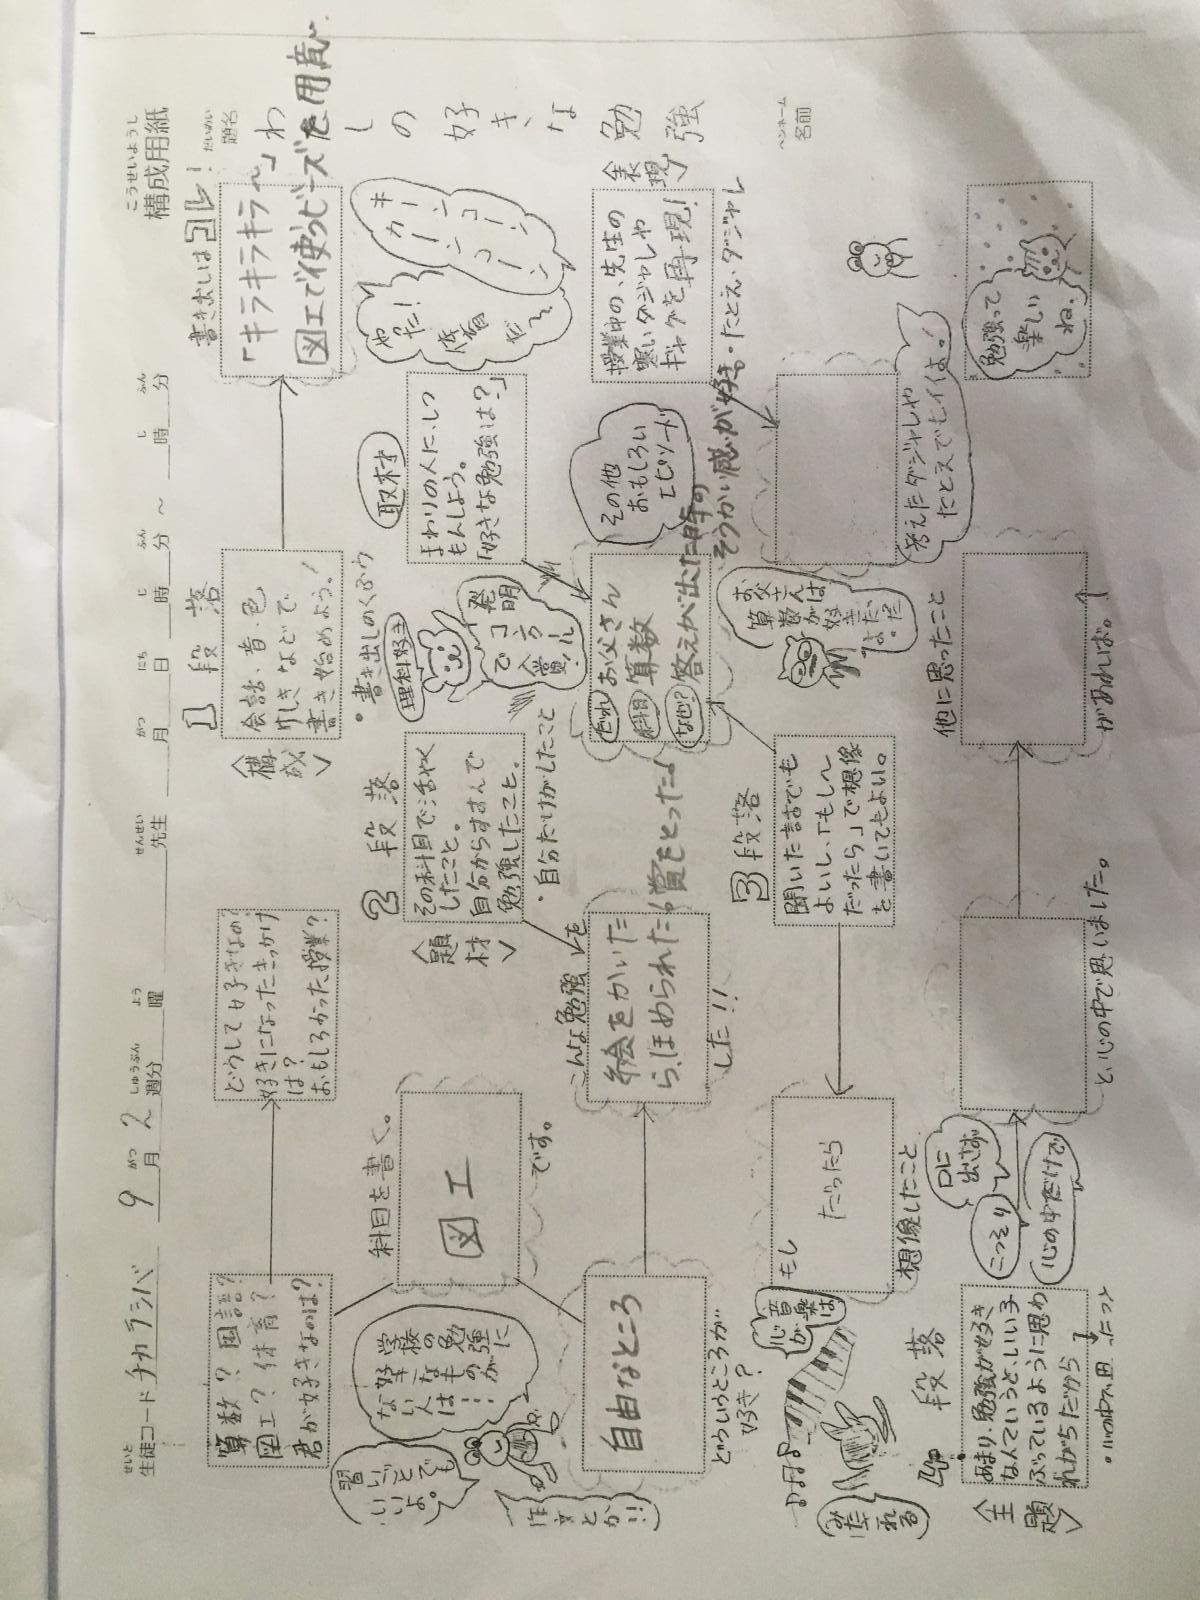 こうせいようし
構成用紙
せいと
生徒コード チカラシバ 9月2週分 曜 先生 月 日 時 分 ~ 時 分
がつ しゅうぶん よう せんせい がつ にち じ ふん じ ふん
だいめい
題名
わ
しの好きな勉強
ペンネーム
名前
1段落
<構成>
会話・音・色
けしきなどで
書き始めよう!
・書き出しのくふう
書き出しはコレ!
「キラキラキラ〜」
図工で使うビーズを用意
算数?国語?
図工?体育?
君が好きなのは?
どうして好きなの?
好きになったきっかけ
は?
おもしろかった授業?
科目を書く。
図工
です。
学校の勉強に
好きなものが
ない人は…
習いごとでも
いいよ。
作文とか!!
自由なところ
どういうところが
好き?
2段落
<題材>
その科目で活やく
したこと。
自分からすすんで
勉強したこと。
・自分だけがしたこと
こんな勉強
を
絵をかいた
ら、ほめられた!
賞をとった♪
した!!
理科好き
発明
で
コンクール
入賞
取材
まわりの人にしつ
もんしよう。
「好きな勉強は?」
キーンコーン
カーンコーン
やった!
体育
だ〜
だれ お父さん
科目 算数
なぜ? 答えが出た時の
そうかい感が好き。
その他
おもしろい
エピソード
お父さんは
算数が好き
<表現>
授業中の、先生の
寒いダジャレや
ギャグを再現!
・たとえ・ダジャレ
考えたダジャレや
たとえでヒイよ!
3段落
聞いた話でも
よいし、「もし〜
だったら」で想像
を書いてもよい。
もし
だったら
想像したこと
音楽は
心が
みだれる
4段落
<主題>
あまり、勉強が好き
なんていうと、いい子
ぶっているように思わ
れがちだから
口に
出さず
こっそり
心の中だけで
と、心の中で思いました。
他に思ったこと
があれば。
勉強って
楽しい
ね、